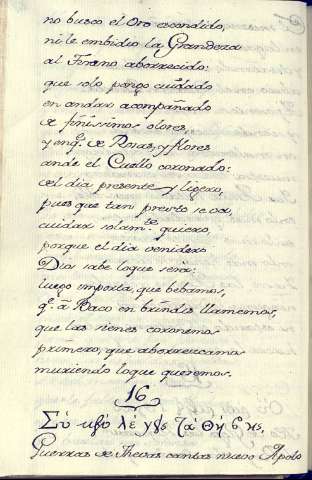 no busco el Oro escondido,
ni le embidio la Grandeza
al Tirano aborrecido:
que solo pongo cuidado
en andar acompañado
de finissimos olores,
y en q.e de Rosas, y flores
ande el Cuello coronado:
del dia presente y ligero,
pues que tan presto se va,
cuidar solam.te quiero,
porque el dia venidero
Dios sabe loque será:
luego importa, que bebamos,
q.e à Baco en brindis llamemos,
que las sienes coronemos
primero, que aborrescamos
muriendo loque queremos.
16
Σὺ λέγεις τὰ Θήβης,
Guerras de Thevas cantas nuevo Apolo